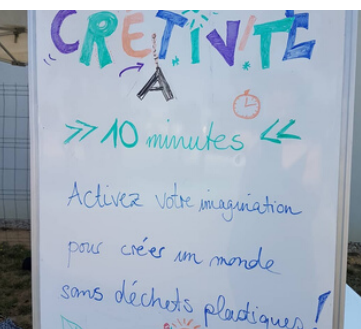 CRÉATIVITÉ
>> 10 minutes <<
Activez votre imagination
pour créer un monde
sans déchets plastiques !